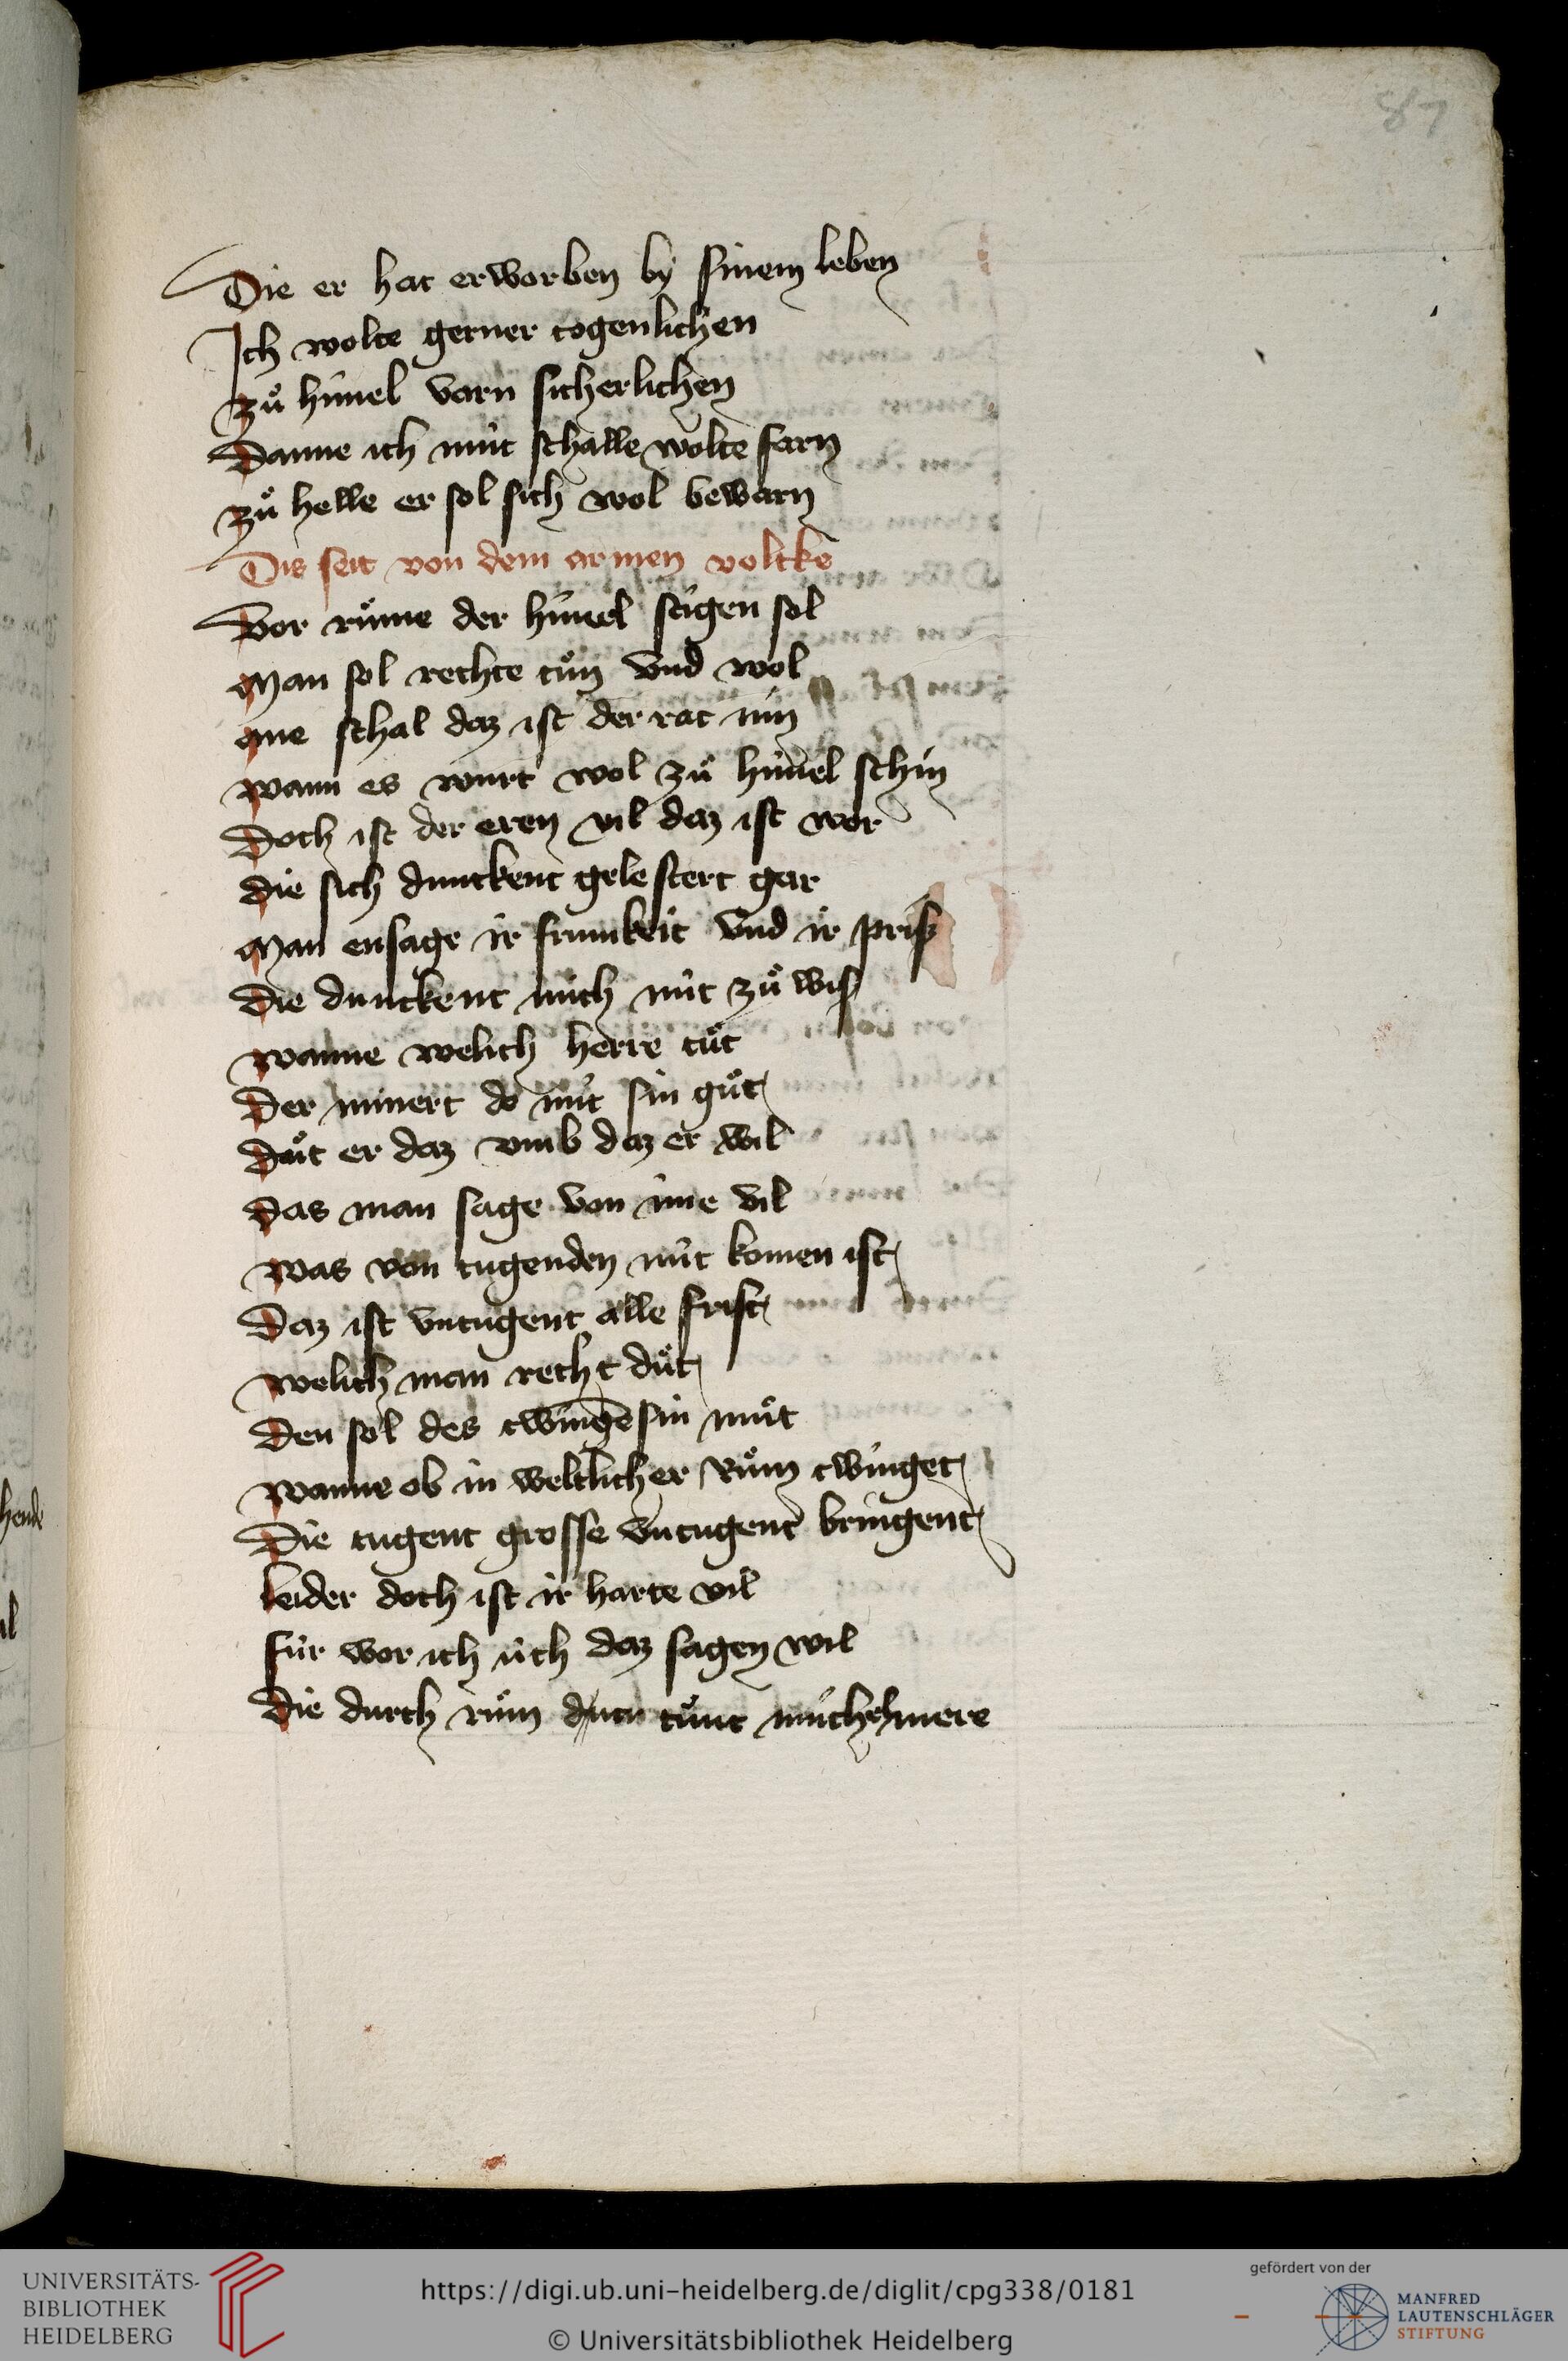 87
Die er hat erworben by sinem leben
Ich wolte gerner togenlichen
zů himel varn sicherlichen
Danne ich mit schalle wolte farn
zů helle er sol sich wol bewarn
Dis seit von dem armen voltke
Vor růme der himel stigen sol
Man sol rechte tůn vnd wol
one schal daz ist der rat min
wann es wurt wol zů himel schin
Doch ist der eren vil daz ist wor
die sich dunckent gelestert gar
Man ensage ir frumkeit vnd ir priß
Die dunckent mich nit zů wis
wanne welich herre tůt
Der minert do mit sin gůt
Důt er daz vmb daz er wil
Das man sage von ime vil
was von tugenden nit komen ist
Daz ist vntugent alle frist
welich man recht důt
Den sol des twingē sin můt
wanne ob in weltlicher Rům twinget
Die tugent grosse vntugent bringent
leider doch ist ir harte vil
für wor ich üch daz sagen wil
Die durch rům tůnt michels mere
hende
il
UNIVERSITÄTS-
BIBLIOTHEK
HEIDELBERG
https://digi.ub.uni-heidelberg.de/diglit/cpg338/0181
© Universitätsbibliothek Heidelberg
gefördert von der
MANFRED
LAUTENSCHLÄGER
STIFTUNG